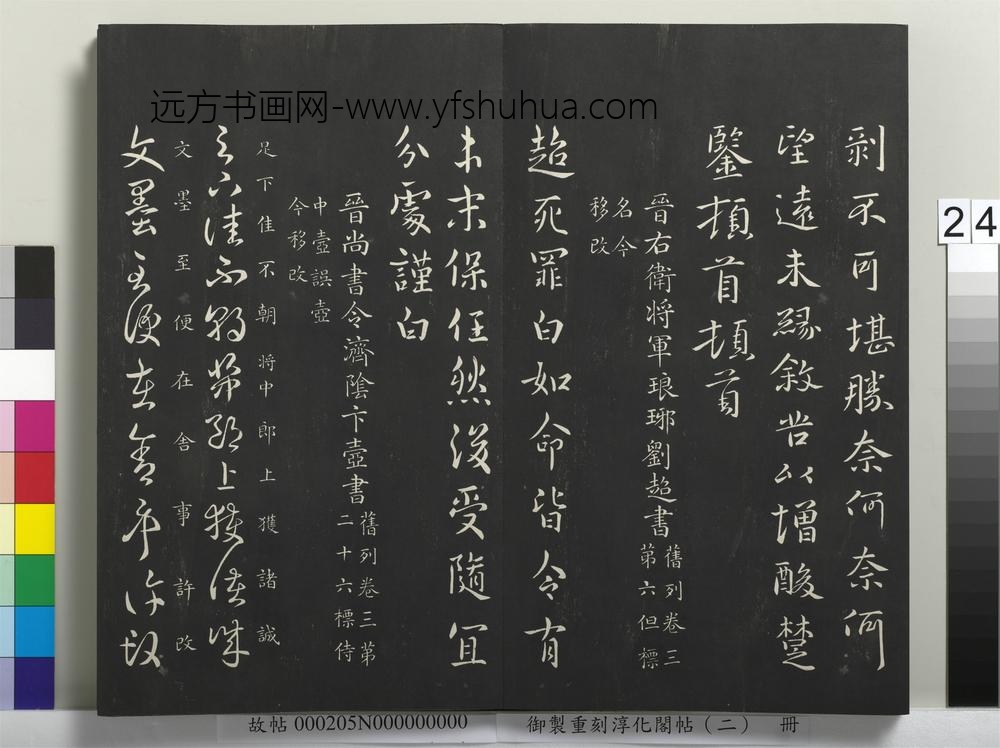 远方书画网-www.yfshuhua.com
剥不可堪勝奈何奈何
望遠未緣敘苦以增酸楚
鑒頓首頓首
晉右衛將軍琅琊劉超書
舊列卷三
第六但標
名今
移改
超死罪白如命皆令有
未宋保任然後受隨宜
分處謹白
晉尚書令濟陰卞壺書
舊列卷三第
二十六標侍
中壺誤壺
今移改
足下佳不朝將中郎上獲諸誠
足下佳不朝將中郎上獲諸誠
文墨至便在舍事許改
文墨至便在舍事許改
24
故帖 000205N000000000 御製重刻淳化閣帖（二） 冊